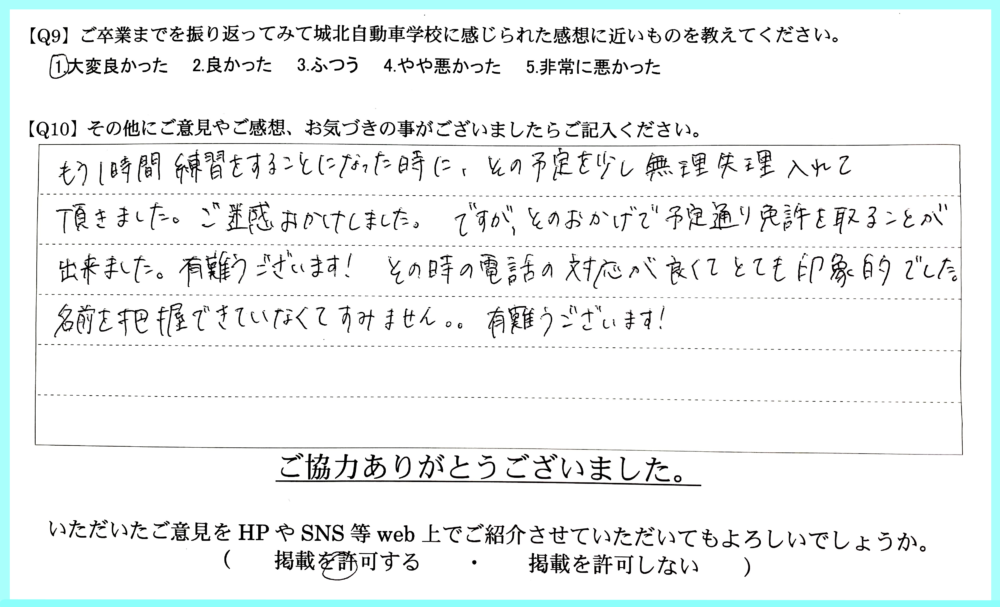 【Q9】ご卒業までを振り返ってみて城北自動車学校に感じられた感想に近いものを教えてください。
1.大変良かった 2.良かった 3.ふつう 4.やや悪かった 5.非常に悪かった
【Q10】その他にご意見やご感想、お気づきの事がございましたらご記入ください。
もう1時間練習をすることになった時に、その予定を少し無理失理入れて
頂きました。ご迷惑おかけしました。ですが、そのおかげで予定通り免許を取ることが
出来ました。有難うございます! その時の電話の対応が良くてとても印象的でした。
名前を把握できていなくてすみません。。有難うございます!
ご協力ありがとうございました。
いただいたご意見をHPやSNS等web上でご紹介させていただいてもよろしいでしょうか。
( 掲載を許可する ・ 掲載を許可しない )